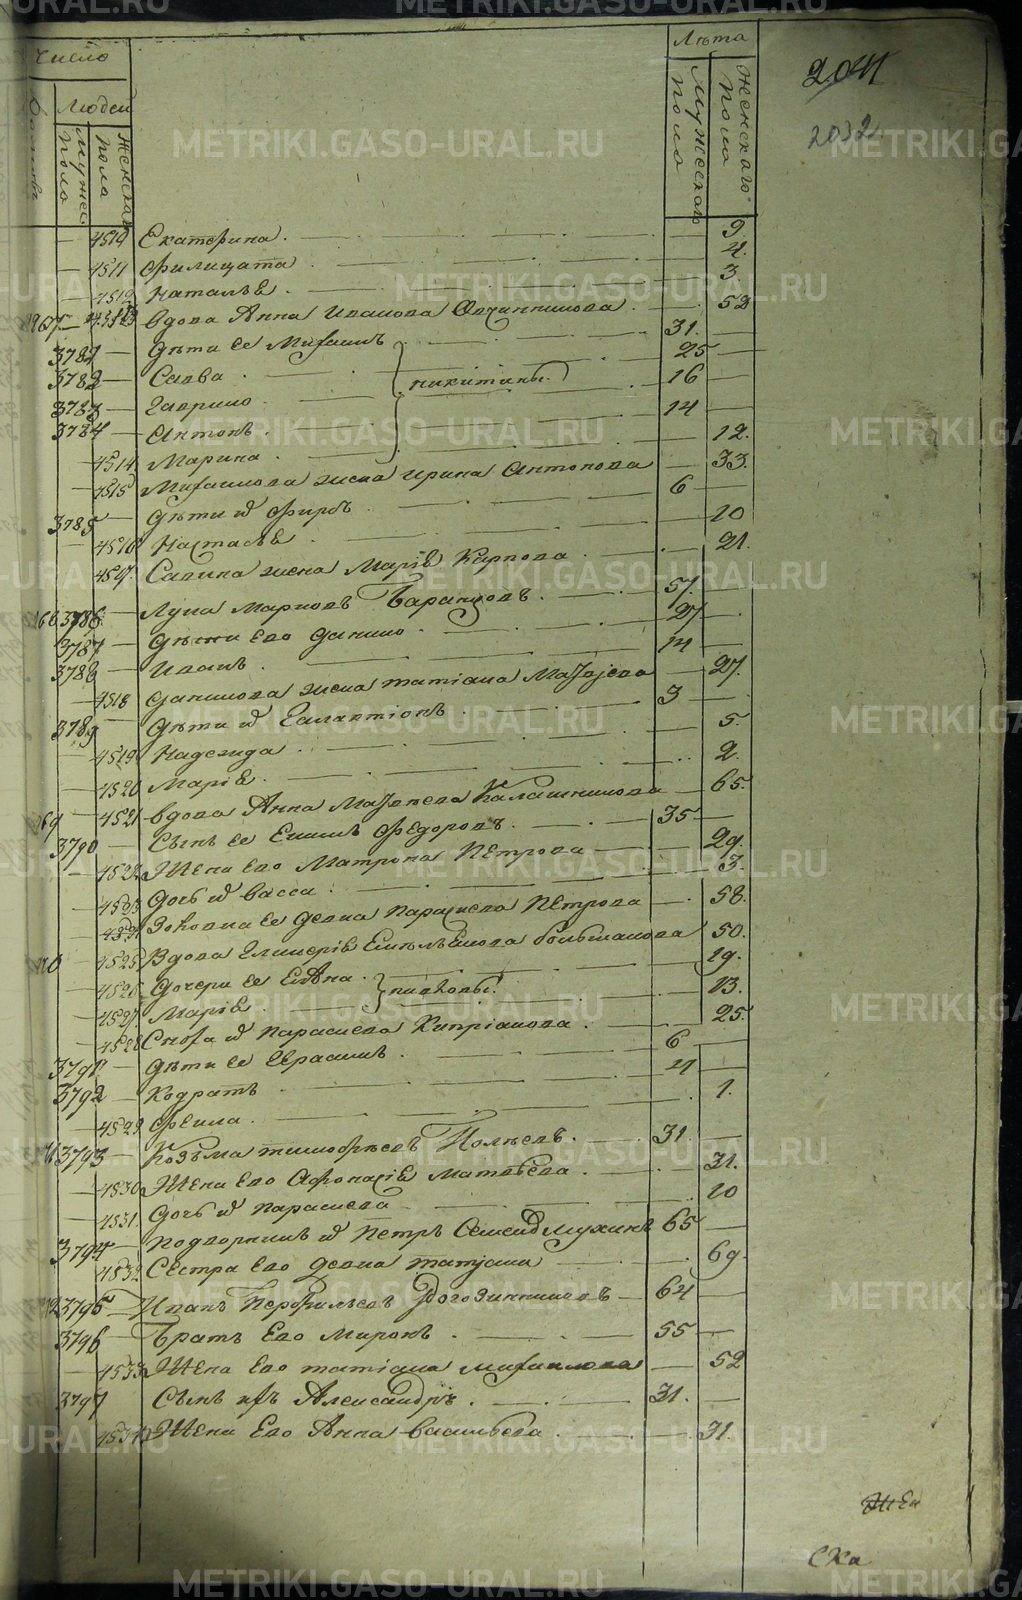 Число
Людей
мужес пола
женскаго пола
Лѣта
мужескаго пола
женскаго пола
2041
2032
— 4510 Екатерина. — 9.
— 4511 Филицата — 4.
— 4512 Наталья. — 3
— 4513 вдова Анна Иванова Овчинникова. — 53
3781 — дѣти Ее Михаилъ — 31.
3782 — Савва. — 25
3783 — Гаврило. никитины. — 16
3784 — Антонъ. — 14
— 4514 Марина. — 12.
— 4515 Михаилова жена ирина Антонова — 33.
3785 — дѣти их Фирсъ — 6
— 4516 Настасья — 10
4517. Савина жена Марія Карпова. — 21.
3786 — Лука Марковъ Баранцовъ. — 57.
3787 — дѣти Ево Данило. — 27
3788 — Иванъ. — 14
— 4518 Данилова жена татіана Маѳѳеева — 27.
3789 — дѣти их Галактіонъ. — 3
— 4519 Надежда — 5.
— 4520 Марія. — 2.
— 4521 вдова Анна Маѳѳеева Калашникова — 65.
3790 — Сынъ ее Екимъ Федоровъ. — 35
— 4522 Жена Ево Матрона Петрова — 29.
— 4523 Дочь их васса. — 3.
— 4524 Золовка ее девка параскева Петрова — 58.
— 4525 Вдова Гликерія Емельянова большакова — 50.
— 4526 Дочери ее Елена. — 19.
— 4527. Марія. павловы. — 13.
— 4528 Сноха их Параскева Кипріанова. — 25.
3791 — дѣти ее Герасимъ. — 6
3792 — Кодратъ — 4
— 4529 Фекла. — 1.
3793 — Козьма тимоѳѣевъ Полѣевъ. — 31.
— 4530 Жена Ево Афонасія Матвѣева. — 31.
— 4531. Дочь их параскева — 10
3794 — Подворникъ их Петръ Семенов Мухинъ 65 —
4532 Сестра Ево девка татіана — 69.
3795 — Иванъ Перфильевъ Рогозинниковъ — 64 —
3796 — Братъ Ево Миронъ. — 55 —
— 4533 Жена Ево татіана михаилова — 52
3797 — Сынъ ихъ Александръ. — 31. —
— 4534 Жена Ево Анна васильева. — 31.
Жен
Ска
METRIKI.GASO-URAL.RU